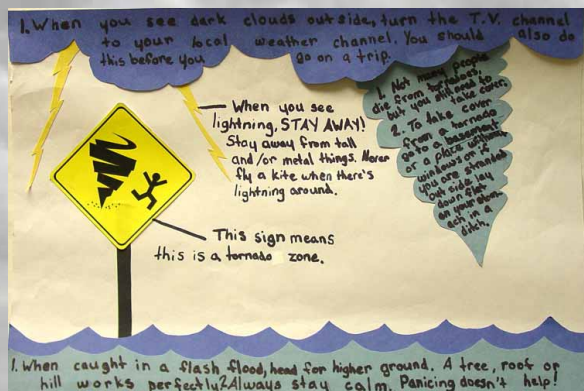 1. When you see dark clouds outside, turn the T.V. channel
to your local weather channel. You should also do
this before you go on a trip.
When you see
lightning, STAY AWAY!
Stay away from tall
and/or metal things. Never
fly a kite when there's
lightning around.
This sign means
this is a tornado zone.
1. Not many people
die from tornadoes,
but you still need to
take cover.
2. To take cover
from a tornado
go to a basement
or a place without
windows or if
you are stranded
outside lay
down flat
on your stom
ach in a
ditch.
1. When caught in a flash flood, head for higher ground. A tree, roof or
hill works perfectly! 2. Always stay calm. Panicing doesn't help!